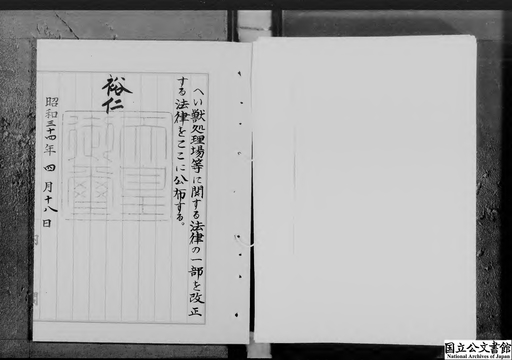 へい獣処理場等に関する法律の一部を改正
する法律をここに公布する。
裕仁
天皇
御璽
昭和三十四年四月十八日
国立公文書館
National Archives of Japan